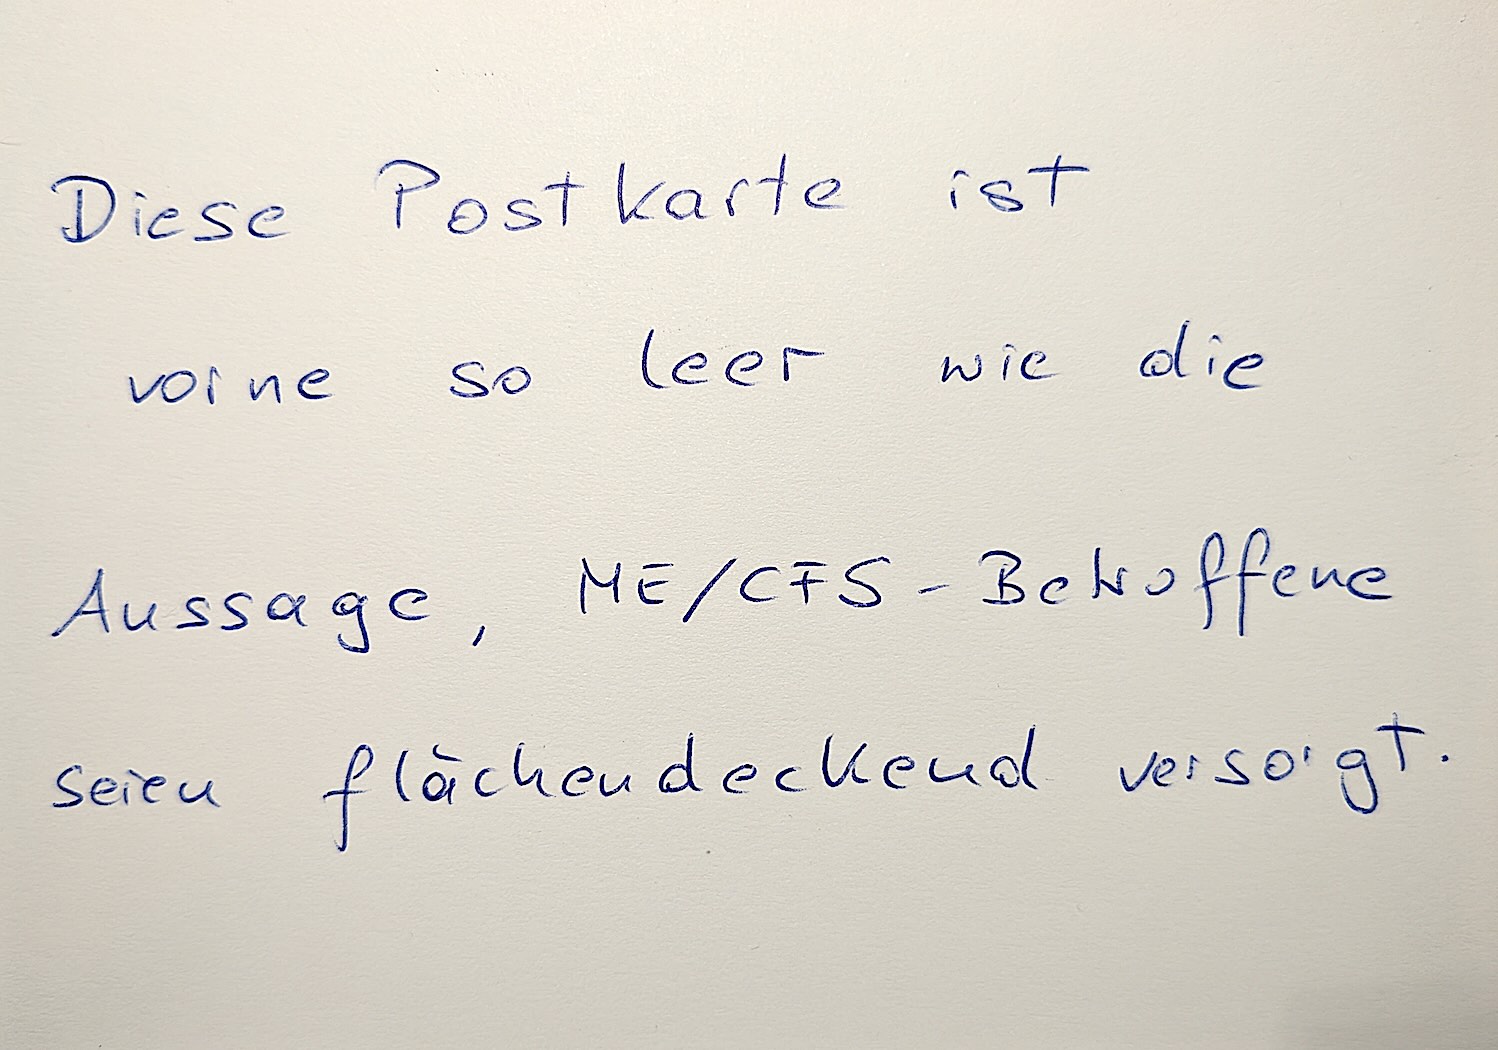 Diese Postkarte ist
vorne so leer wie die
Aussage, ME/CFS-Betroffene
seien flächendeckend versorgt.